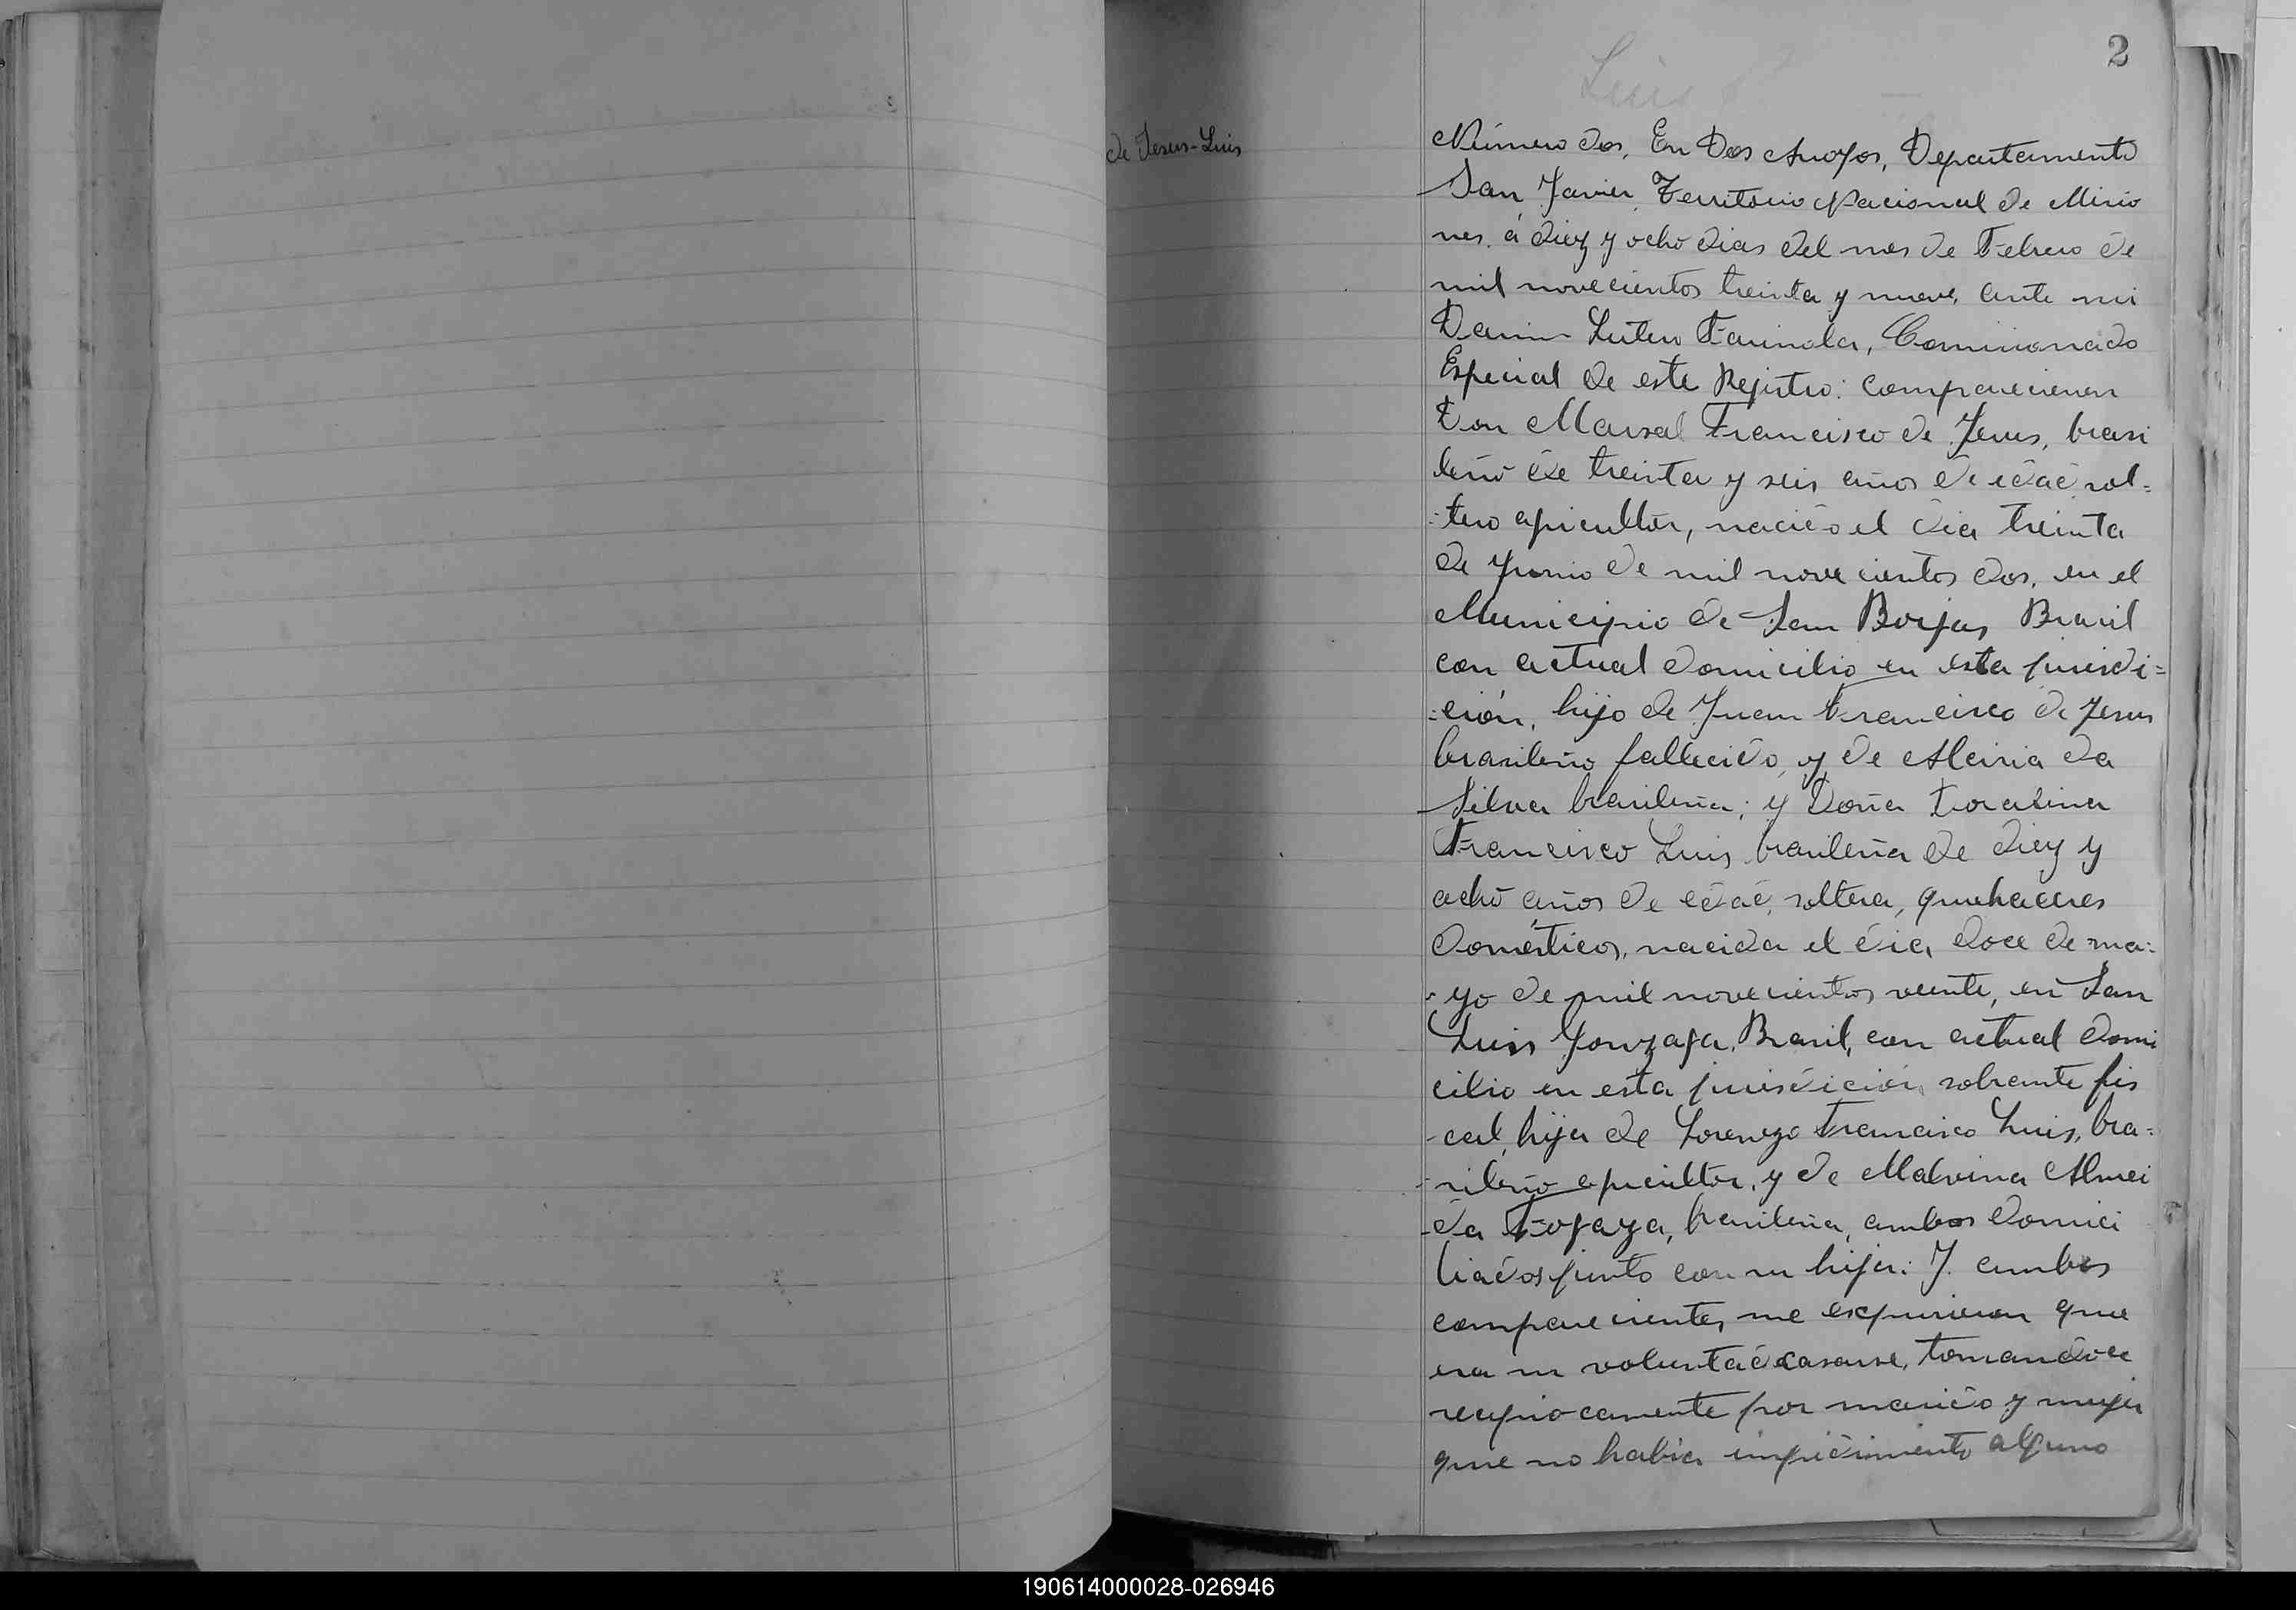 2
Luis
de Jesus-Luis
Número dos, En Dos Arroyos, Departamento
San Javier, Territorio Nacional de Misio
nes, á diez y ocho dias del mes de Febrero de
mil novecientos treinta y nueve, ante mi
Lutero Farinola, Comisionado
Especial de este Rejistro: comparecieron
Don Marsal Francisco de Jesus, brasi
leño de treinta y seis años de edad, sol=
=tero agricultor, nacido el dia treinta
de Junio de mil novecientos dos, en el
Municipio de San Borjas Brasil
con actual domicilio en esta jurisdi=
=ción, hijo de Juan Francisco de Jesus
brasileño fallecido, y de Alciria da
Silva brasileña; y Doña Doralina
Francisco Luis, brasileña de diez y
ocho años de edad, soltera, quehaceres
domésticos, nacida el dia doce de ma=
=yo de mil novecientos veinte, en San
Luis Gonzaga, Brasil, con actual domi
cilio en esta jurisdición, sobrante fis
-cal, hija de Lorenzo Francisco Luis, bra=
-sileño agricultor, y de Malvina Almei
-da Fogaza, brasileña, ambos domici
liados junto con su hija: Y ambos
comparecientes me expusieron que
era su voluntad casarse, tomandose
reciprocamente por marido y mujer
que no habia impedimento alguno
190614000028-026946